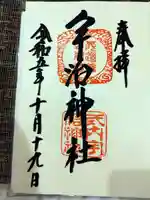 奉拝
宇治神社
令和五年十月十九日